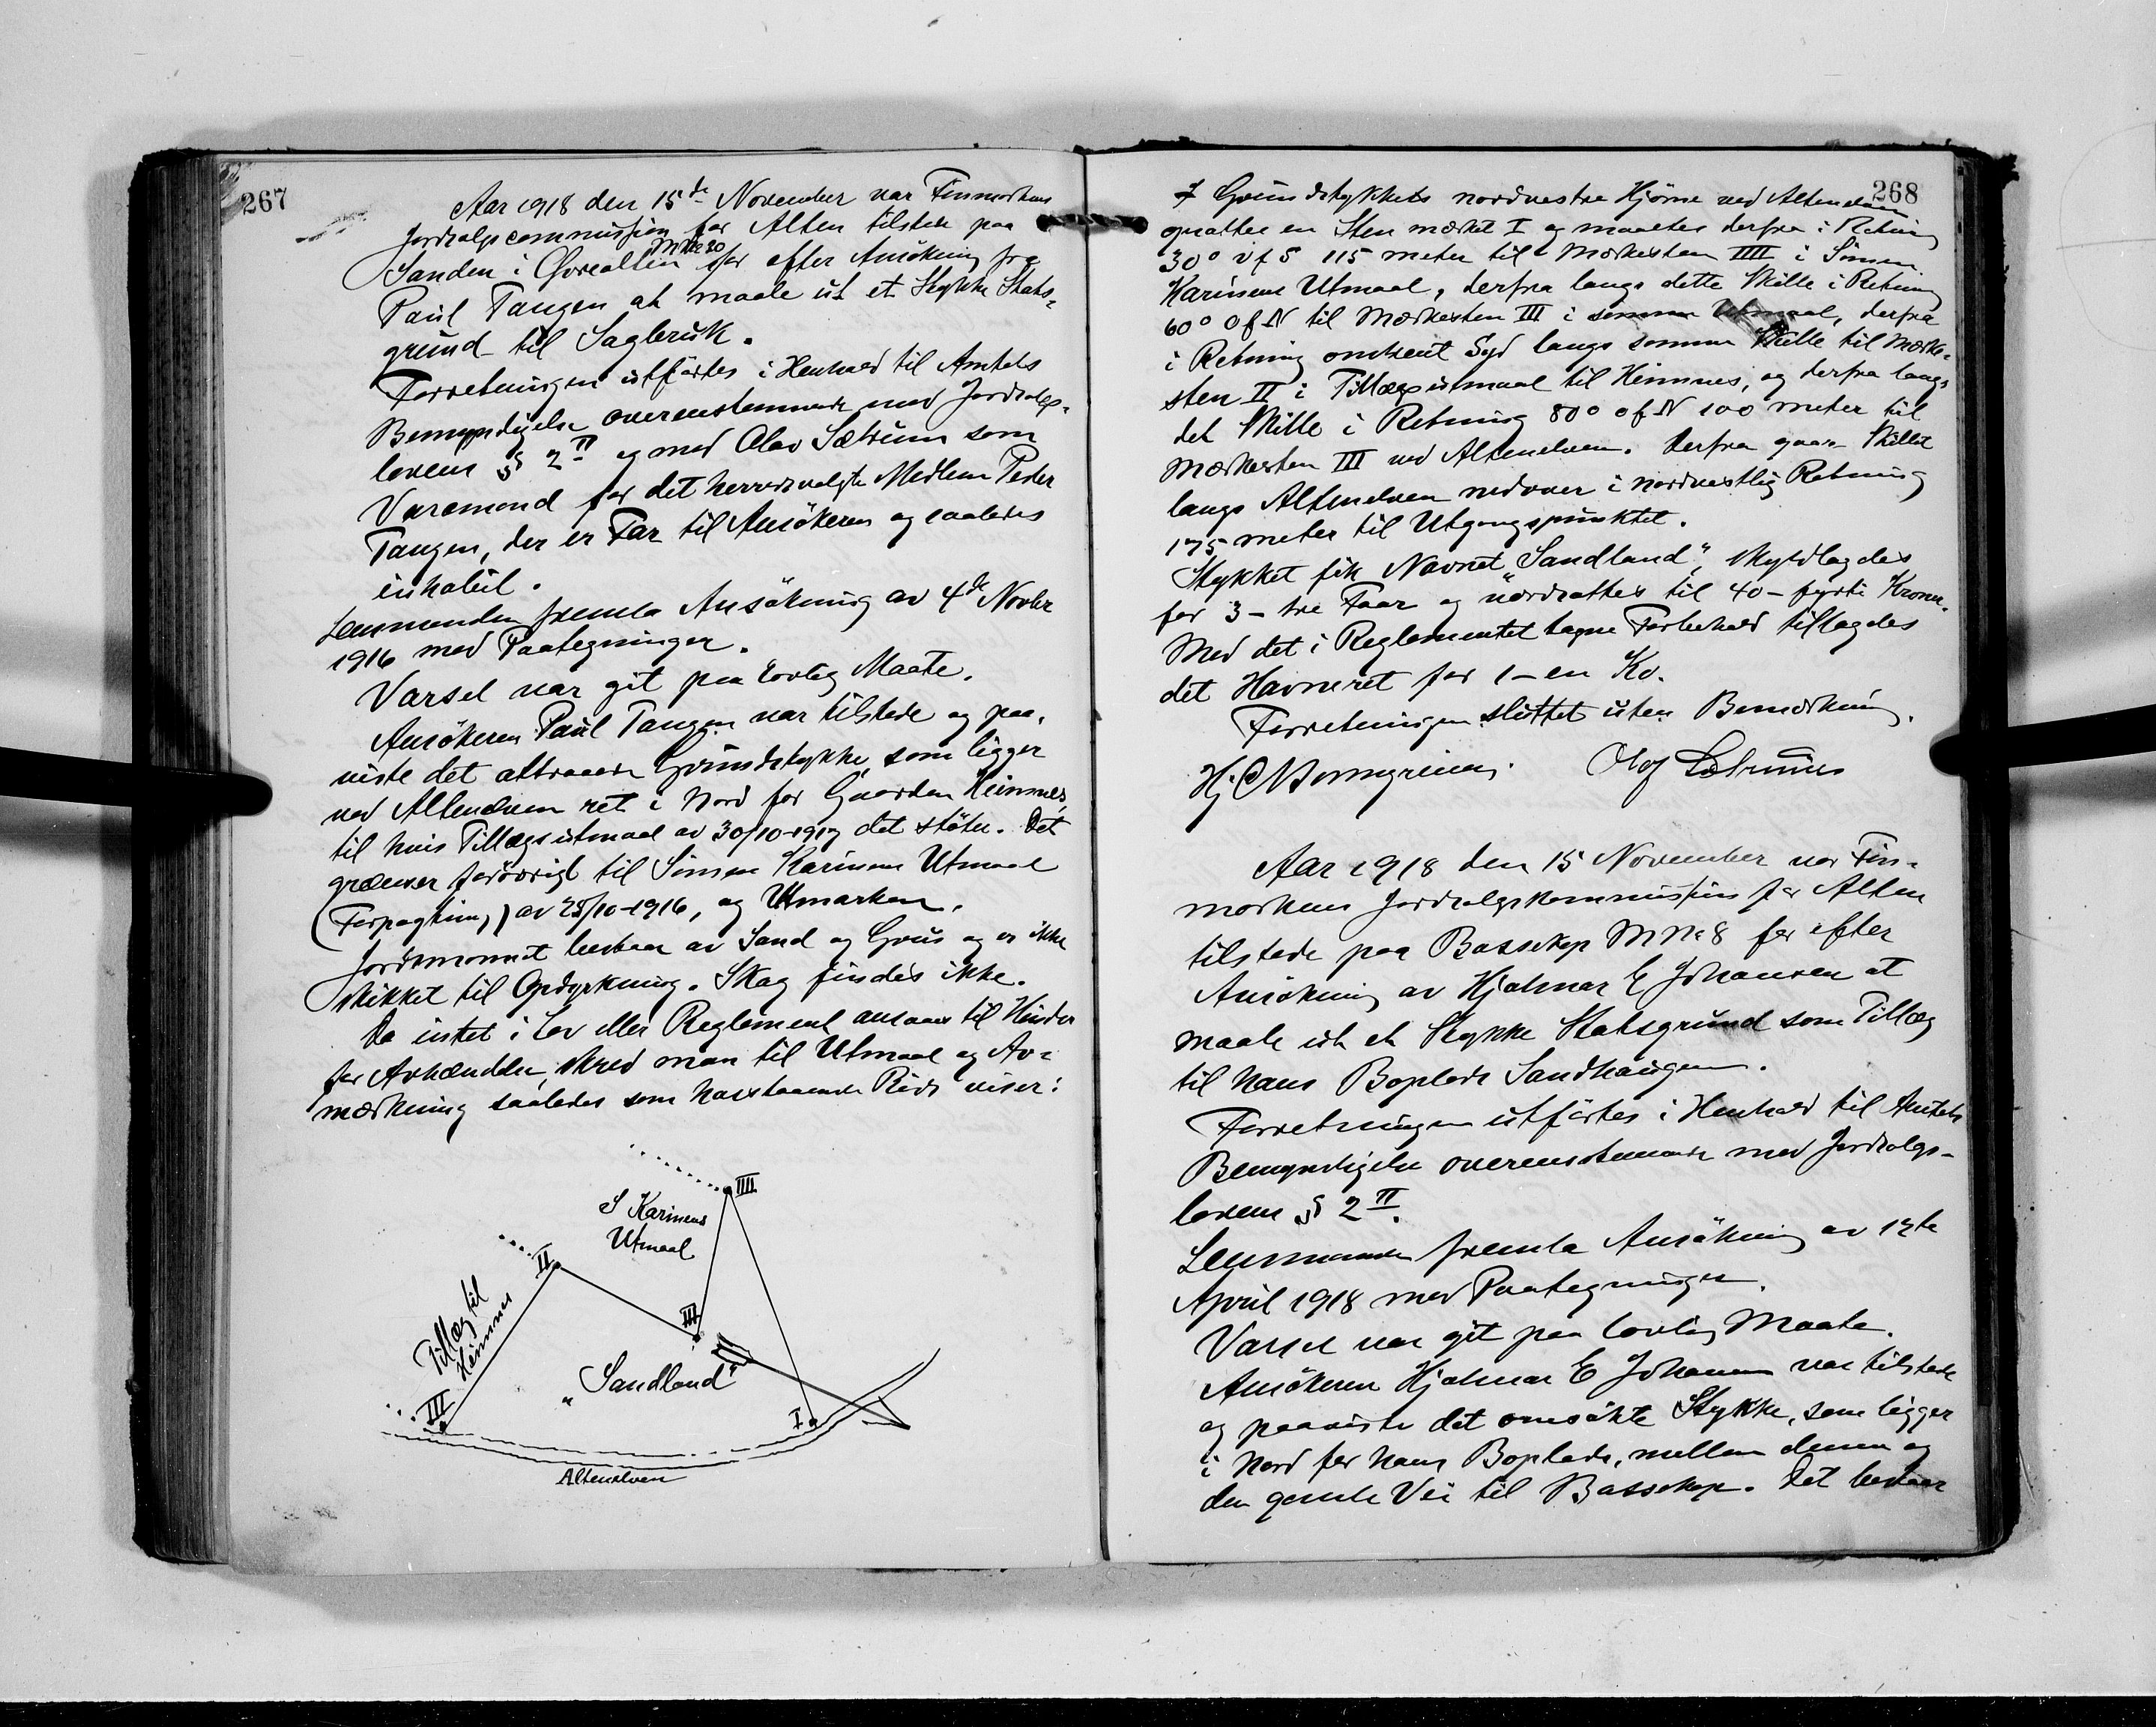 267
Aar 1918 den 15de November var Finmarkens
Jordsalgscommission for Alten tilstede paa
Sanden i Övrealten M No 20 for efter Ansökning fra
Paul Tangen at maale ut et Stykke Stats-
grund til Sagbruk.
Forretningen utförtes i Henhold til Amtets
Bemyndigelse overensstemmende med Jordsalgs-
lovens § 2 II og med Olav Sætrum som
Varamand for det herredsvalgte Medlem Peder
Tangen, der er Far til Ansökeren og saaledes
inhabil.
Lensmanden fremla Ansökning av 4de Novbr
1916 med Paategninger.
Varsel var git paa lovlig Maate.
Ansökeren Paul Tangen var tilstede og paa-
viste det attraaede Grundstykke, som ligger
ved Altenelven ret i Nord for Gaarden Heimnes,
til hvis Tillægsutmaal av 30/10-1917 det stöter. Det
grænser forövrigt til Simen Karinens Utmaal
(Forpagtning) av 28/10-1916, og Utmarken.
Jordsmonnet bestaar av Sand og Grus og er ikke
skikket til Opdyrkning. Skog findes ikke.
Da intet i Lov eller Reglement ansaaes til Hinder
for Avhændelse, skred man til Utmaal og Av-
mærkning saaledes som hosstaaende Rids viser:
IIII
S Karinens
Utmaal
II
Tillæg til
Heimnes
III
"Sandland"
III
I
Altenelven
268
I Grundstykkets nordvestre Hjörne ved Altenelven
nedsattes en Sten mærket I og maaltes derfra i Retning
30° V f S 115 meter til Mærkesten IIII i Simen
Karinens Utmaal, derfra langs dette Skille i Retning
60° O f N til Mærkesten III i samme Utmaal, derfra
i Retning omtrent Syd langs samme Skille til Mærke-
sten II i Tillægsutmaal til Heimnes, og derfra langs
det Skille i Retning 80° O f N 100 meter til
Mærkesten III ved Altenelven. Derfra gaar Skillet
langs Altenelven nedover i nordvestlig Retning
175 meter til Utgangspunktet.
Stykket fik Navnet "Sandland", skyldlagdes
for 3 - tre Faar og værdsattes til 40 - fyrti Kroner.
Med det i Reglementet tagne Forbehold tillagdes
det Havneret for 1 - en Ko.
Forretningen sluttet uten Bemærkning.
Hj. Olav Sætrum
Aar 1918 den 15 November var Fin-
markens Jordsalgskommission for Alten
tilstede paa Bossekop M No 8 for efter
Ansökning av Hjalmar E Johansen at
maale ut et Stykke Statsgrund som Tillæg
til hans Boplads Sandhaugen.
Forretningen utförtes i Henhold til Amtets
Bemyndigelse overensstemmende med Jordsalgs-
lovens § 2 II.
Lensmanden fremla Ansökning av 12te
April 1918 med Paategninger.
Varsel var git paa lovlig Maate.
Ansökeren Hjalmar E Johansen var tilstede
og paaviste det omsökte Stykke, som ligger
i Nord for hans Boplads, mellem denne og
den gamle Vei til Bossekop. Det bestaar